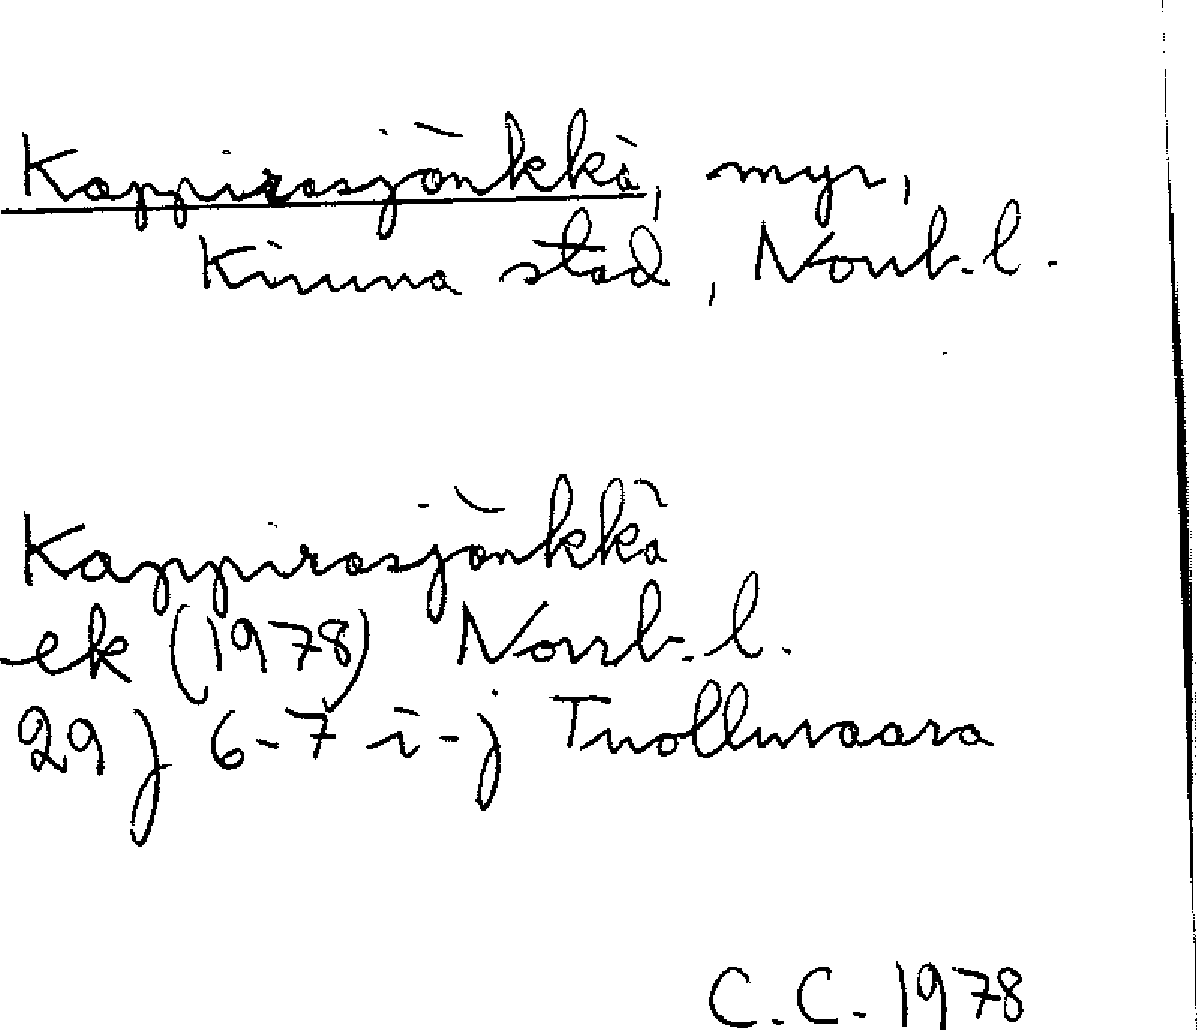 Kappirasjänkkä, myr,
Kiruna stad, Norrb. l.
Kappirasjänkkä
ek (1978) Norrb. l.
29 J 6-7 i-j Tuolluvaara
C.C. 1978